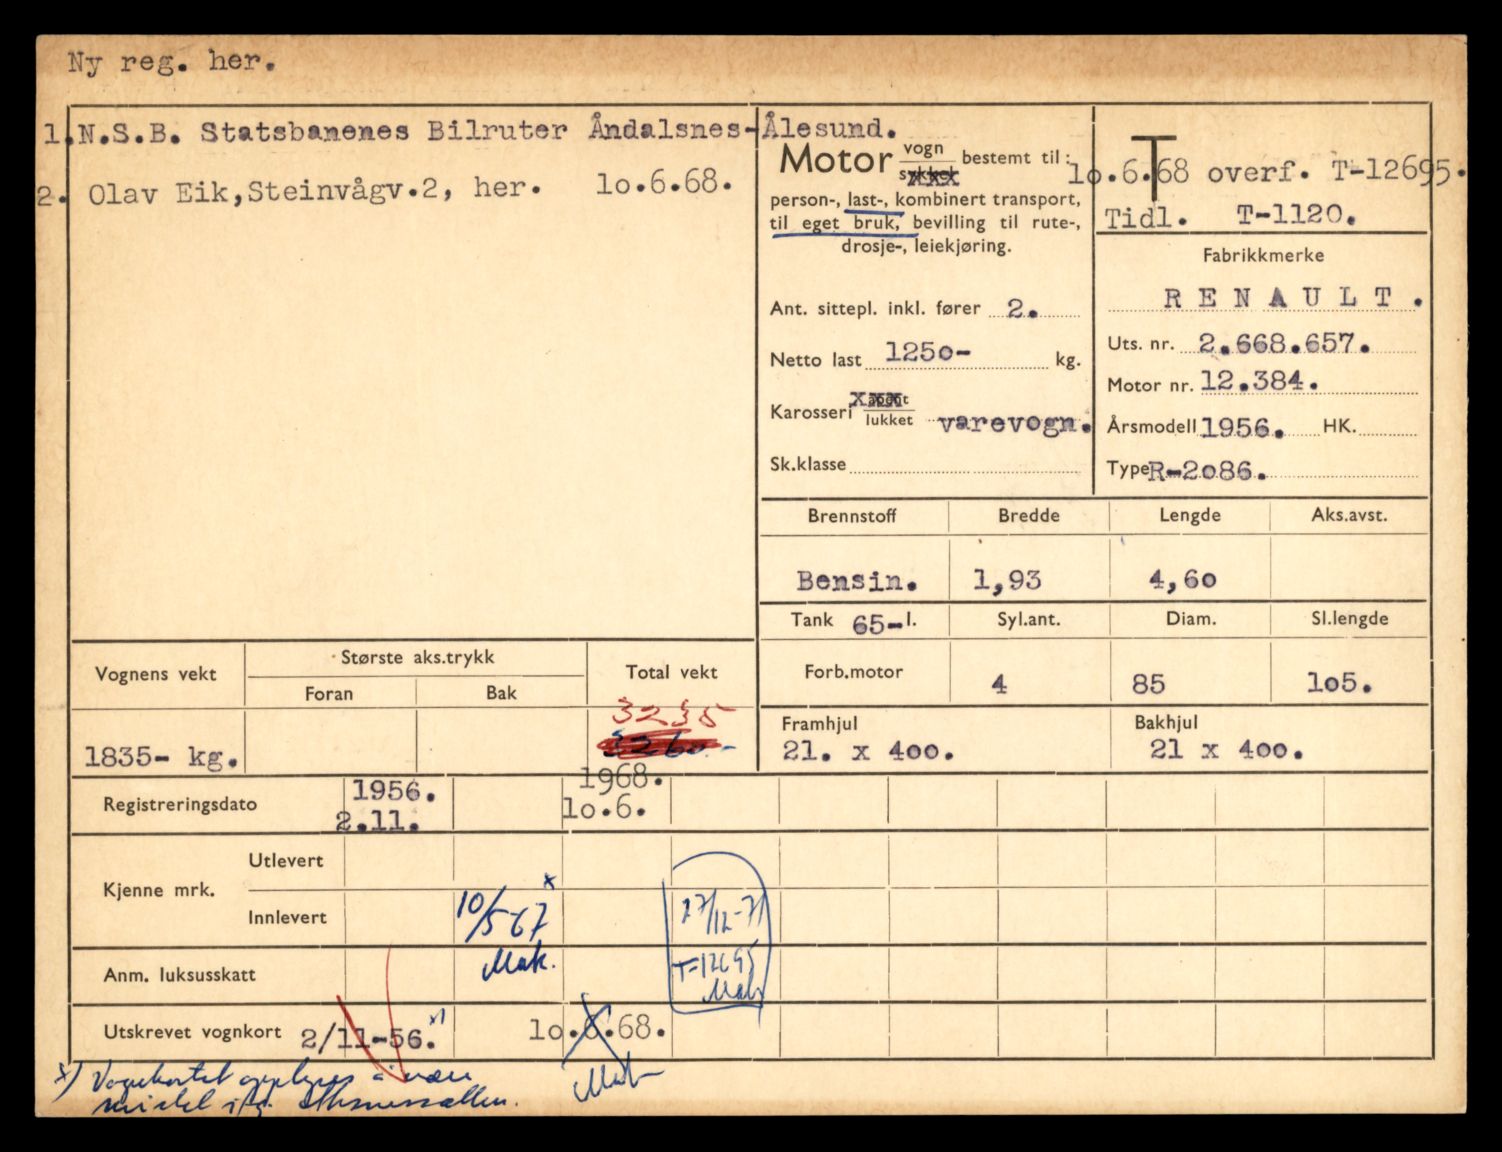 Ny reg. her.
1. N.S.B. Statsbanenes Bilruter Åndalsnes-Ålesund.
2. Olav Eik, Steinvågv.2, her. 1o.6.68.
Motor vogn bestemt til:
person-, last-, kombinert transport,
til eget bruk, bevilling til rute-,
drosje-, leiekjøring.
Ant. sittepl. inkl. fører 2.
Netto last 125o- kg.
Karosseri åpent xxx
lukket varevogn.
Sk.klasse
T
1o.6.68 overf. T-12695.
Tidl. T-1120.
Fabrikkmerke
R E N A U L T .
Uts. nr. 2.668.657.
Motor nr. 12.384.
Årsmodell 1956. HK.
Type R-2o86.
Brennstoff Bredde Lengde Aks.avst.
Bensin. 1,93 4,6o
Tank 65- l. Syl.ant. Diam. Sl.lengde
Forb.motor 4 85 1o5.
Framhjul Bakhjul
21. x 4oo. 21 x 4oo.
Vognens vekt Største aks.trykk Total vekt
Foran Bak
3235
1835- kg. 3260.-
Registreringsdato 1956. 1968.
2.11. 1o.6.
Kjenne mrk. Utlevert
Innlevert 10/5-67 x 27/12-71
Mak. T-12695
Anm. luksusskatt Mak
Utskrevet vognkort 2/11-56. x) 1o.6.68.
Mak
x) Vognkortet opplyses å være